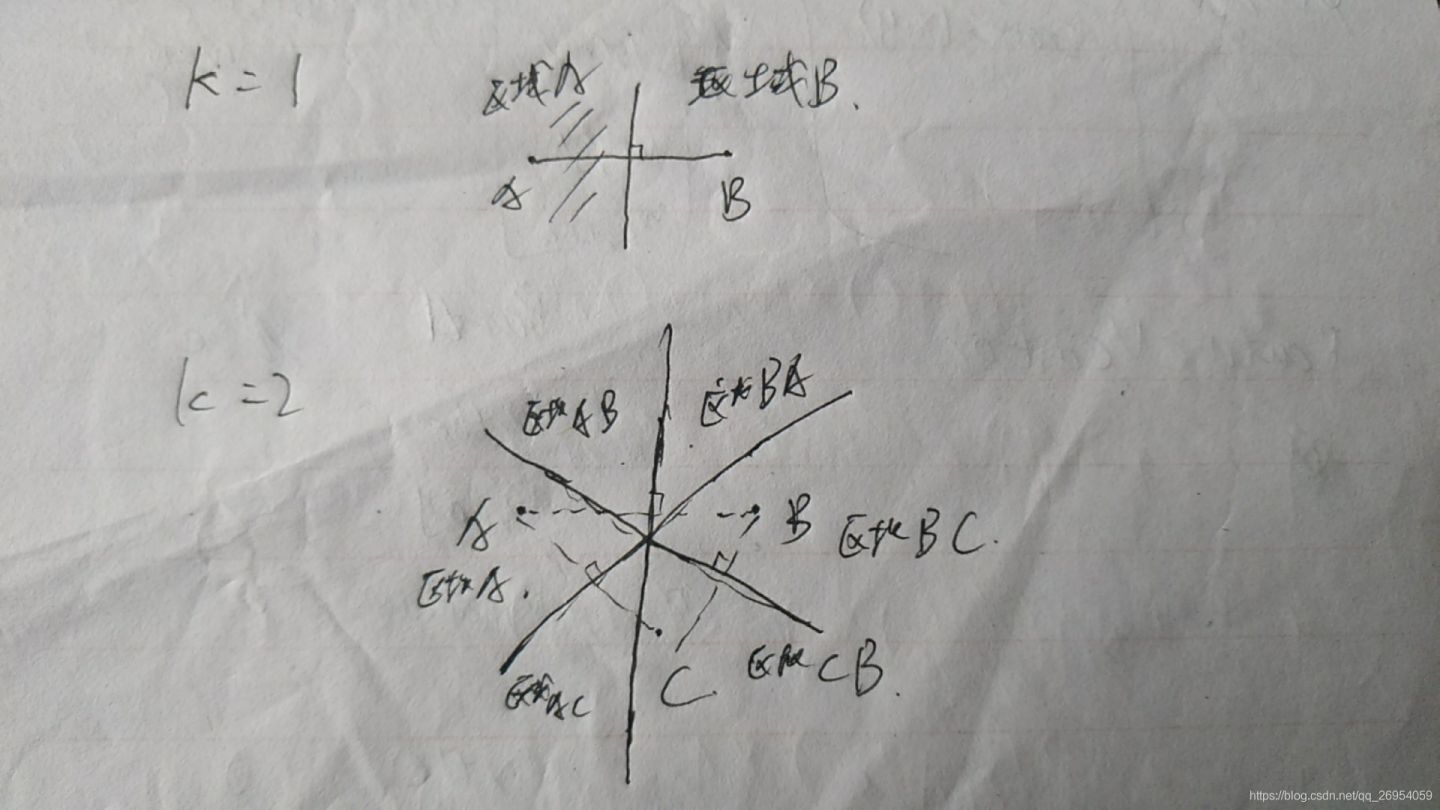 k=1
区域A
区域B.
A
B
k=2
区域AB
区域BA
A
B
区域BC.
区域A.
C
区域CB.
区域AC
https://blog.csdn.net/qq_26954059